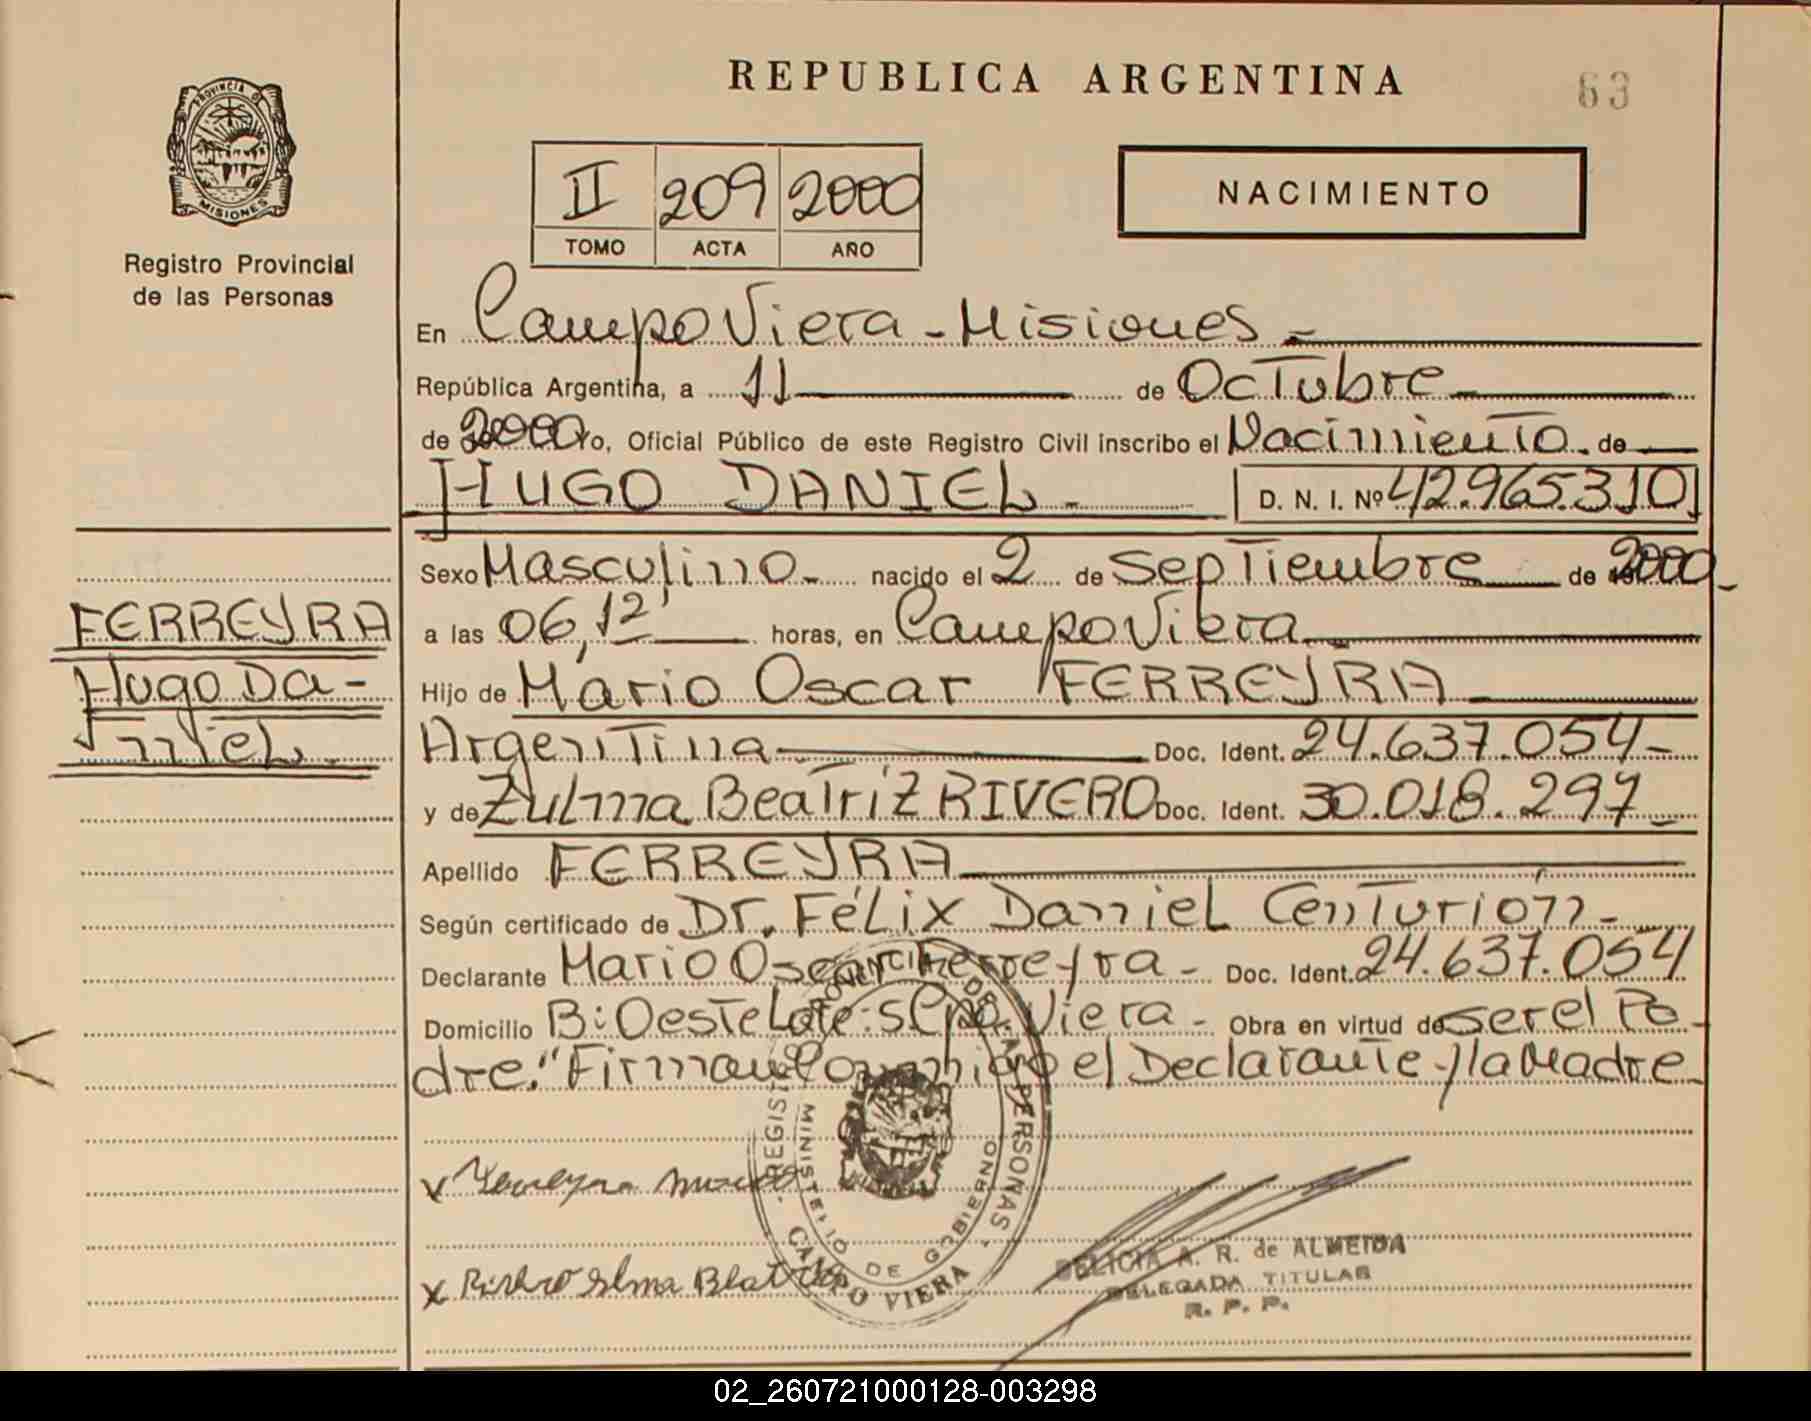 REPUBLICA ARGENTINA
63
PROVINCIA DE MISIONES
Registro Provincial
de las Personas
II 209 2000
TOMO ACTA AÑO
NACIMIENTO
En Campo Viera - Misiones -
República Argentina, a 11 de Octubre
de 2000 Yo, Oficial Público de este Registro Civil inscribo el Nacimiento de
HUGO DANIEL - D. N. I. Nº 42.965.310
Sexo Masculino - nacido el 2 de Septiembre de 2000 -
a las 06,12 horas, en Campo Viera
Hijo de Mario Oscar FERREYRA
Argentina Doc. Ident. 24.637.054 -
y de Zulma Beatriz RIVERO Doc. Ident. 30.018.297 -
Apellido FERREYRA
Según certificado de Dr. Félix Daniel Centurión -
Declarante Mario Oscar Ferreyra - Doc. Ident. 24.637.054
Domicilio B: Oeste Lote: Cpo. Viera - Obra en virtud de ser el Pa-
dre." Firman Conmigo el Declarante y la Madre
FERREYRA
Hugo Da-
niel
REGISTRO PROVINCIAL DE LAS PERSONAS
MINISTERIO DE GOBIERNO
CAMPO VIERA
DELICIA A. R. de ALMEIDA
DELEGADA TITULAR
R. P. P.
02_260721000128-003298